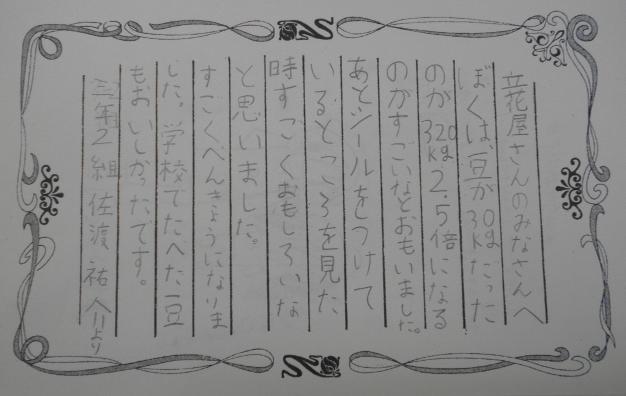 立花屋さんのみなさんへ
ぼくは、豆が30kgだった
のが320kg2.5倍になる
のがすごいなとおもいました。
あとシールをつけて
いるところを見た
時すごくおもしろいな
と思いました。
すごくべんきょうになりま
した。学校でたべた豆
もおいしかったです。
三年2組 佐渡 祐介より